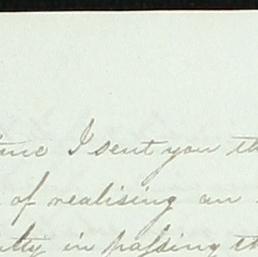 I sent you th
of realising an
in passing th